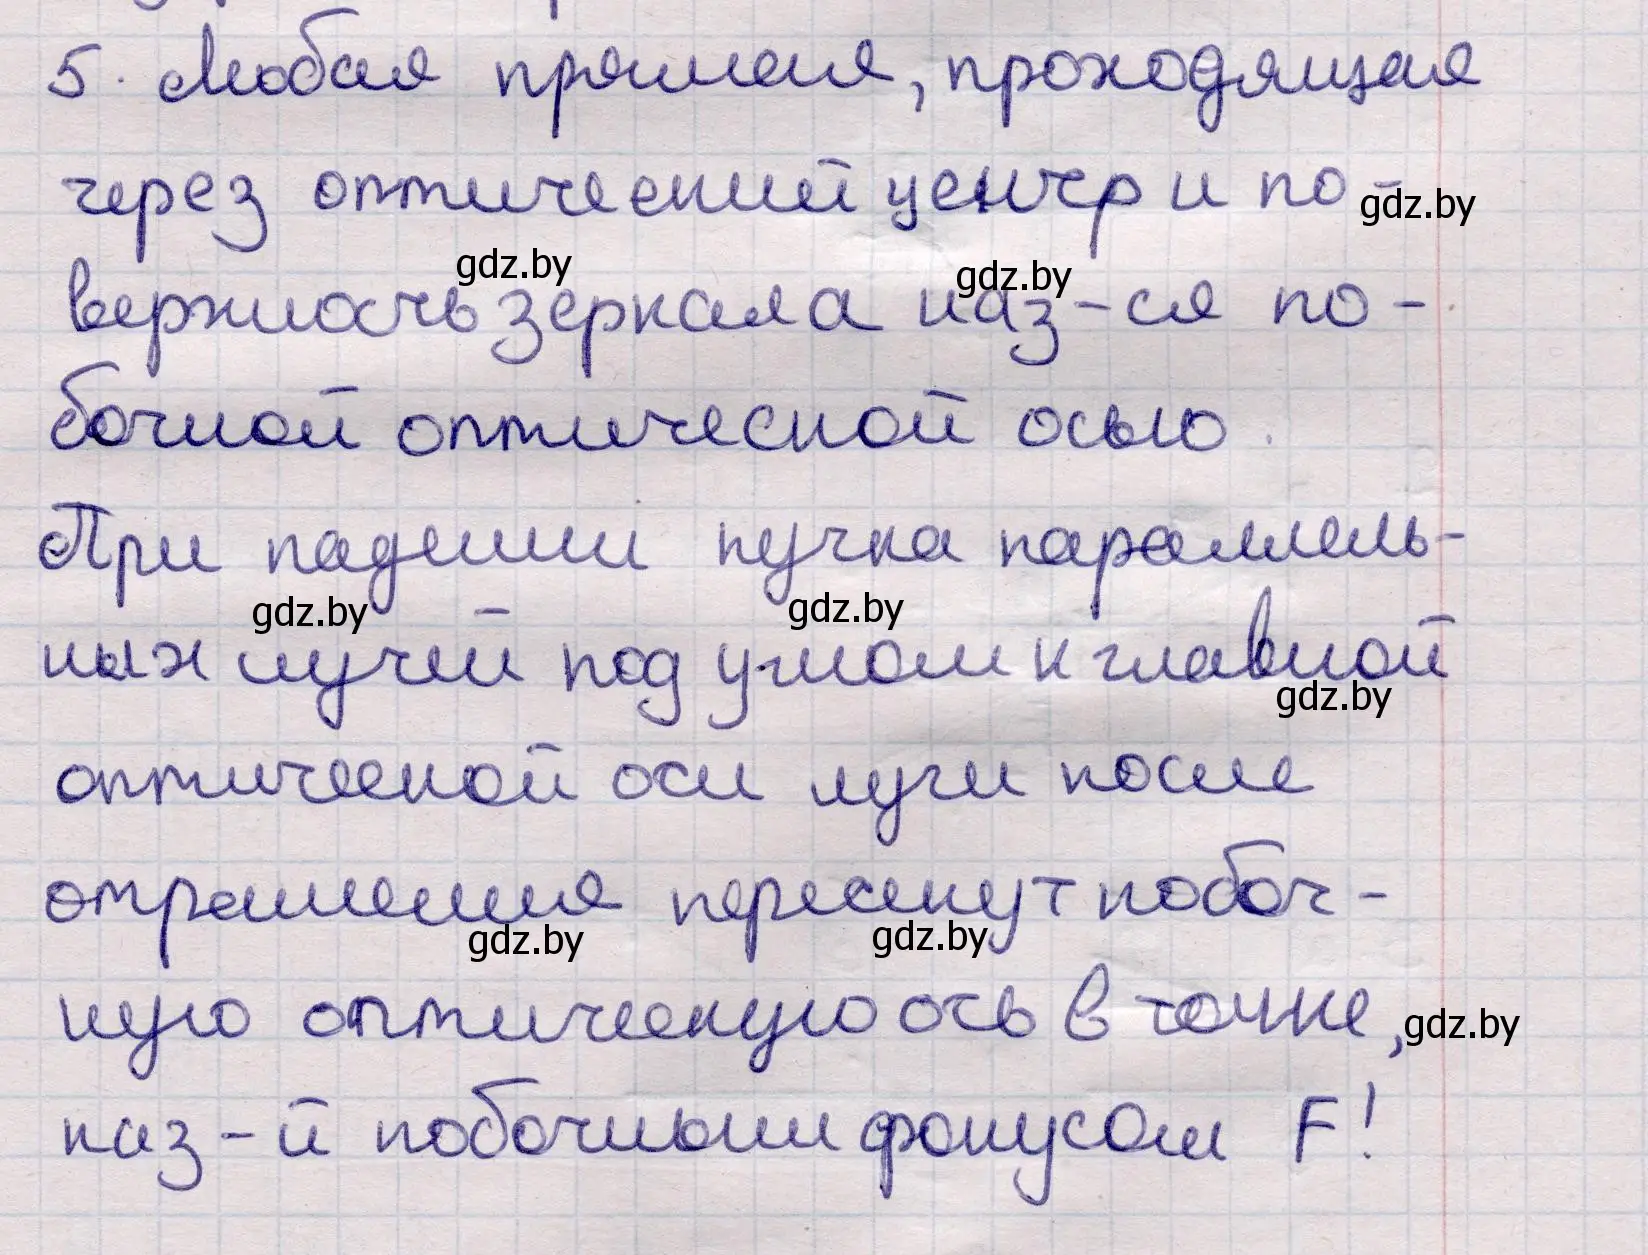 5. Любая прямая, проходящая
через оптический центр и по-
gdz.by
gdz.by
gdz.by
верхность зеркала наз-ся по-
бочной оптической осью.
При падении пучка параллель-
gdz.by
gdz.by
ных лучей под углом к главной
gdz.by
оптической оси лучи после
отражения пересекут побоч-
gdz.by
gdz.by
ную оптическую ось в точке,
gdz.by
наз-й побочным фокусом F!